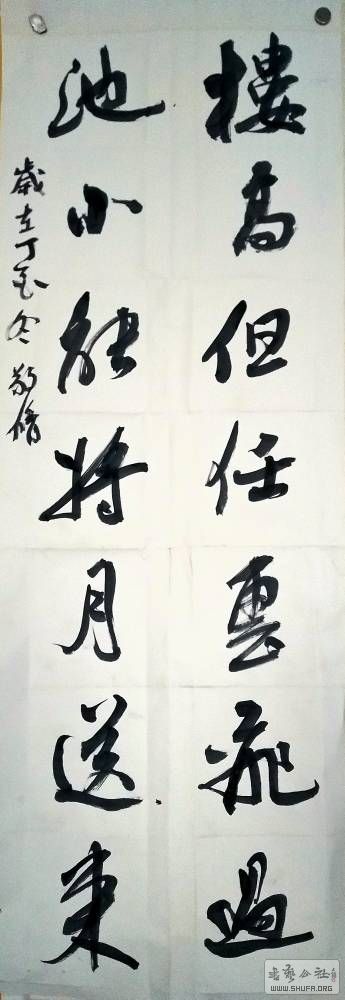 樓高但任雲飛過
池小能將月送来
歲在丁酉冬
書藝公社
WWW.SHUFA.ORG